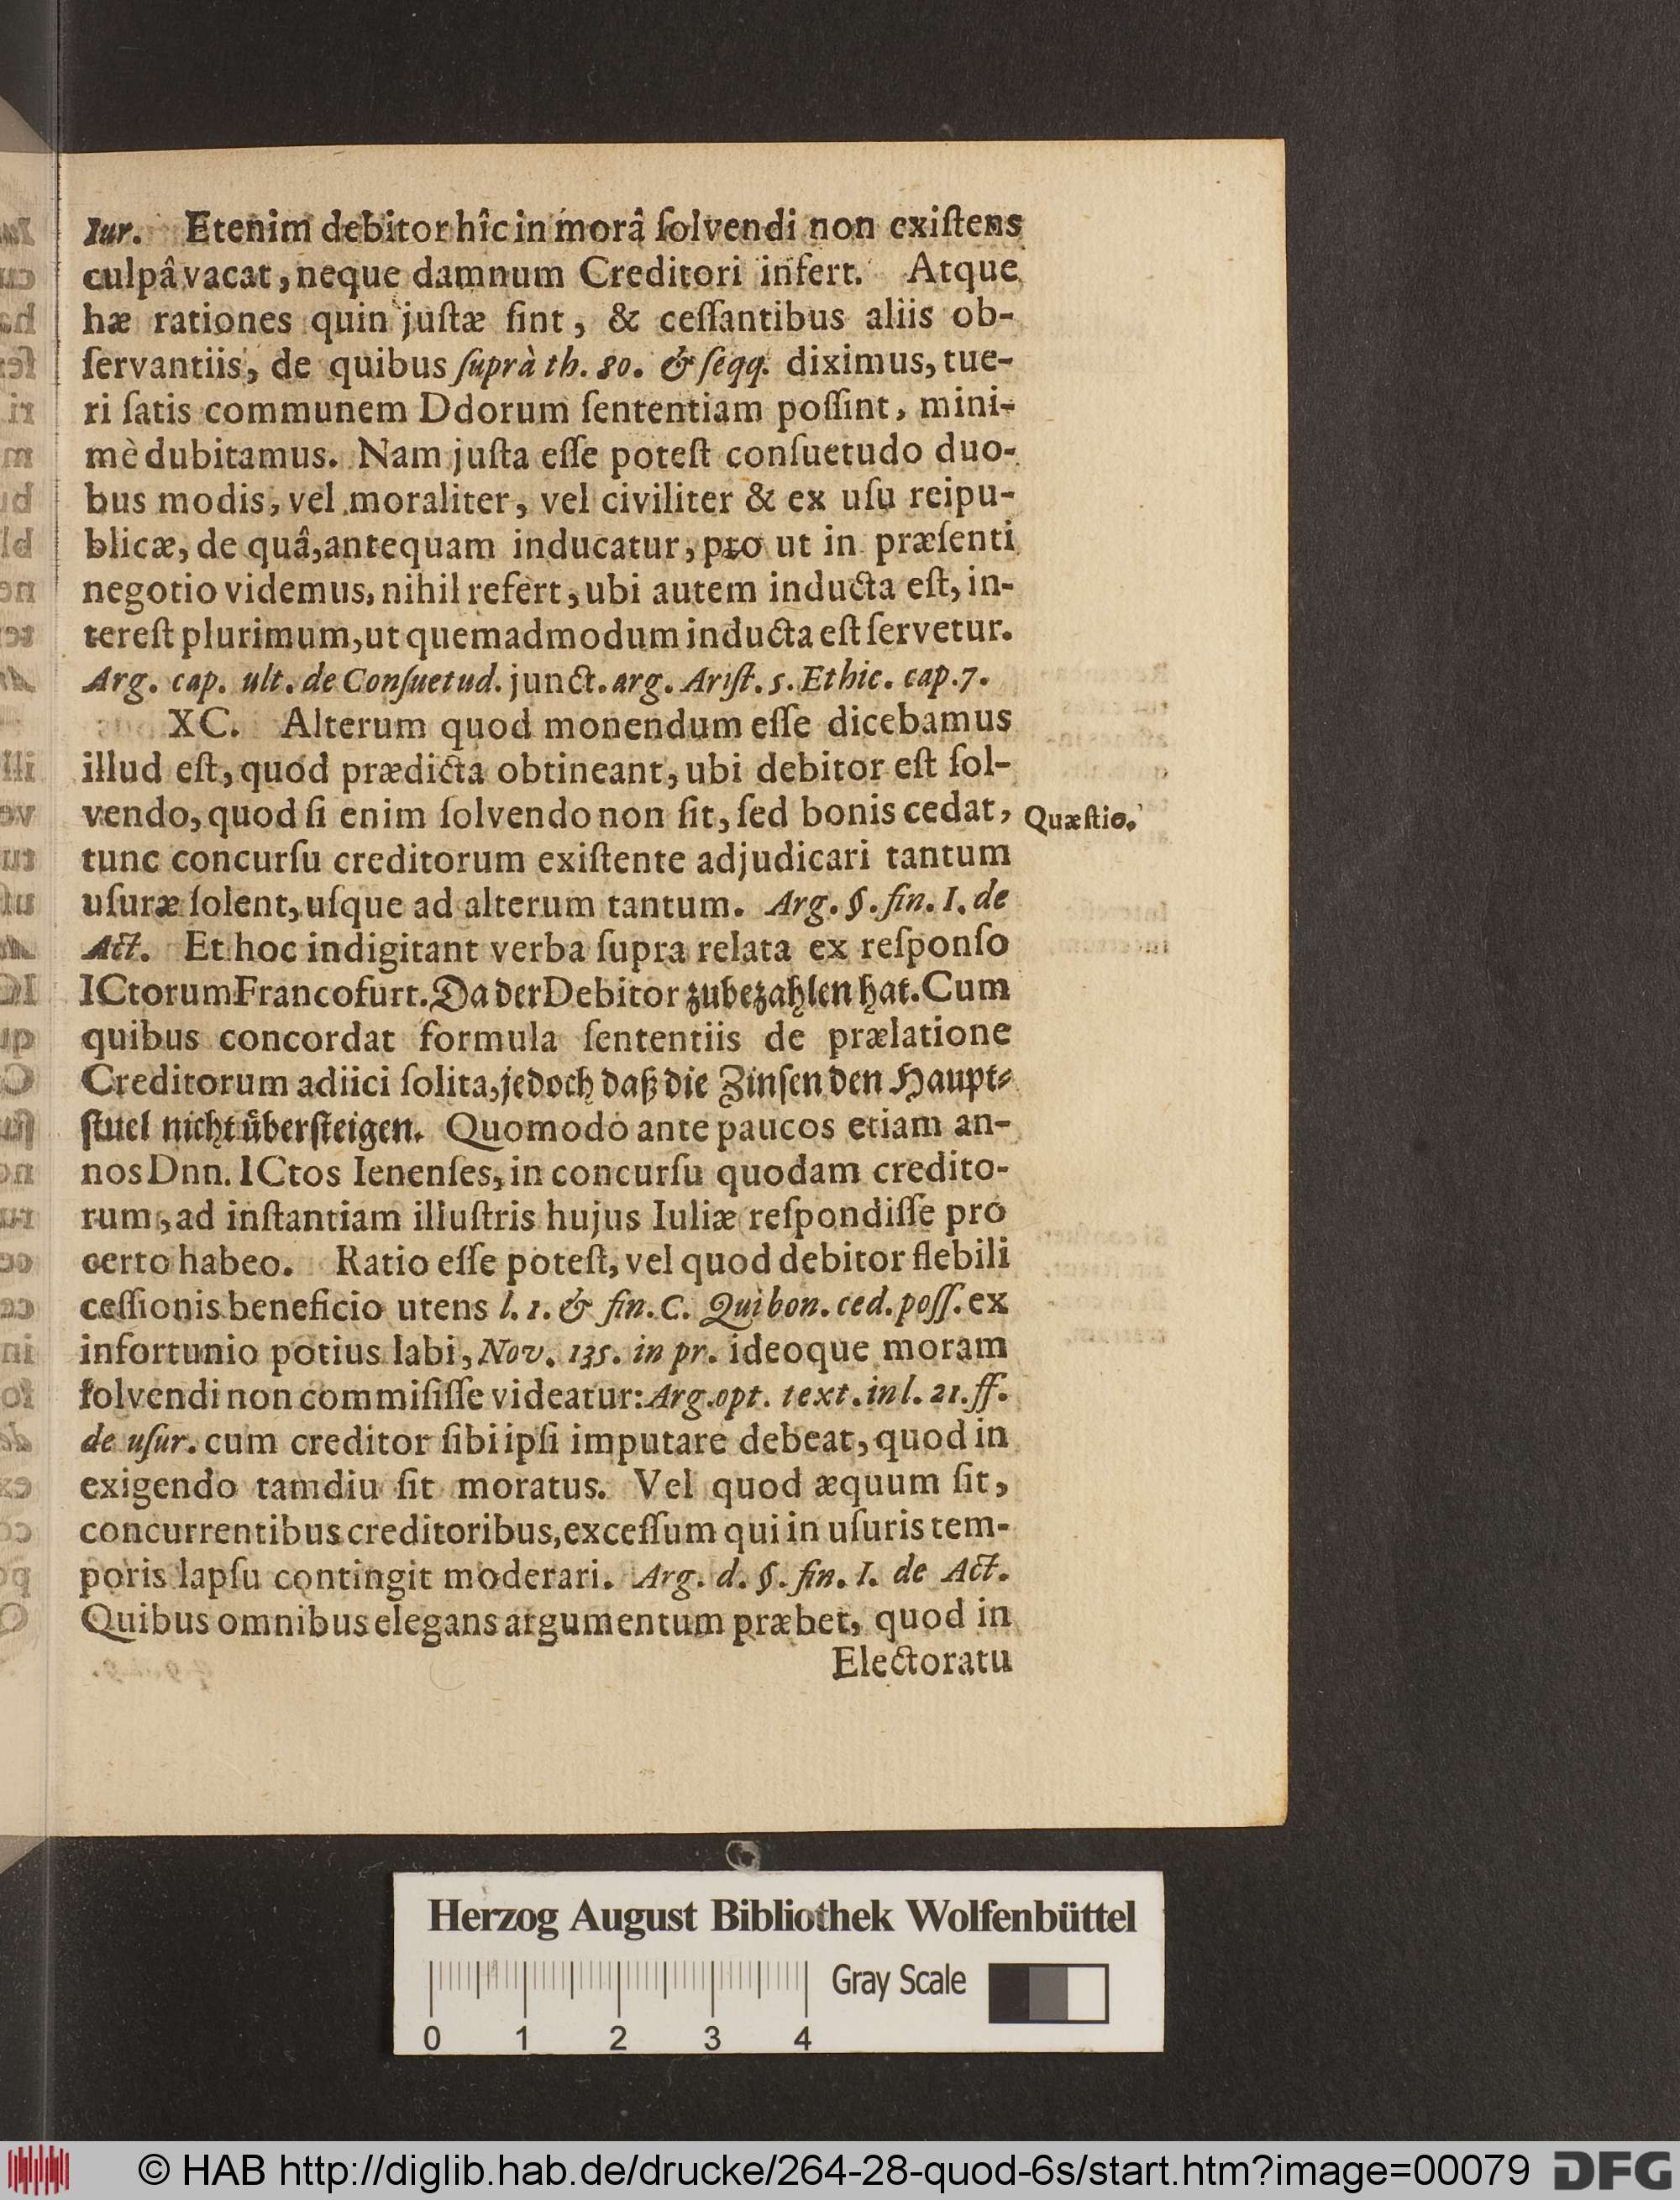 Iur. Etenim debitor hîc in morâ ſolvendi non exiſtens
culpâ vacat, neque damnum Creditori infert. Atque
hæ rationes quin juſtæ ſint, & ceſſantibus aliis ob-
ſervantiis, de quibus ſuprà th. 80. & ſeqq. diximus, tue-
ri ſatis communem Ddorum ſententiam poſſint, mini-
mè dubitamus. Nam juſta eſſe poteſt conſuetudo duo-
bus modis, vel moraliter, vel civiliter & ex uſu reipu-
blicæ, de quâ, antequam inducatur, pro ut in præſenti
negotio videmus, nihil refert, ubi autem inducta eſt, in-
tereſt plurimum, ut quemadmodum inducta eſt ſervetur.
Arg. cap. ult. de Conſuetud. junct. arg. Ariſt. 5. Ethic. cap. 7.
XC. Alterum quod monendum eſſe dicebamus
illud eſt, quod prædicta obtineant, ubi debitor eſt ſol-
vendo, quod ſi enim ſolvendo non ſit, ſed bonis cedat,
Quæſtio.
tunc concurſu creditorum exiſtente adjudicari tantum
uſuræ ſolent, uſque ad alterum tantum. Arg. §. fin. I. de
Act. Et hoc indigitant verba ſupra relata ex reſponſo
ICtorum Francofurt. Da der Debitor zubezahlen hat. Cum
quibus concordat formula ſententiis de prælatione
Creditorum adiici ſolita, jedoch daß die Zinſen den Haupt-
ſtuel nicht uͤberſteigen. Quomodo ante paucos etiam an-
nos Dnn. ICtos Ienenſes, in concurſu quodam credito-
rum, ad inſtantiam illuſtris hujus Iuliæ reſpondiſſe pro
certo habeo. Ratio eſſe poteſt, vel quod debitor flebili
ceſſionis beneficio utens l. 1. & fin. C. Qui bon. ced. poſſ. ex
infortunio potius labi, Nov. 135. in pr. ideoque moram
ſolvendi non commiſiſſe videatur: Arg. opt. text. in l. 21. ff.
de uſur. cum creditor ſibi ipſi imputare debeat, quod in
exigendo tamdiu ſit moratus. Vel quod æquum ſit,
concurrentibus creditoribus, exceſſum qui in uſuris tem-
poris lapſu contingit moderari. Arg. d. §. fin. I. de Act.
Quibus omnibus elegans argumentum præbet, quod in
Electoratu
Herzog August Bibliothek Wolfenbüttel
Gray Scale
0 1 2 3 4
© HAB http://diglib.hab.de/drucke/264-28-quod-6s/start.htm?image=00079
DFG